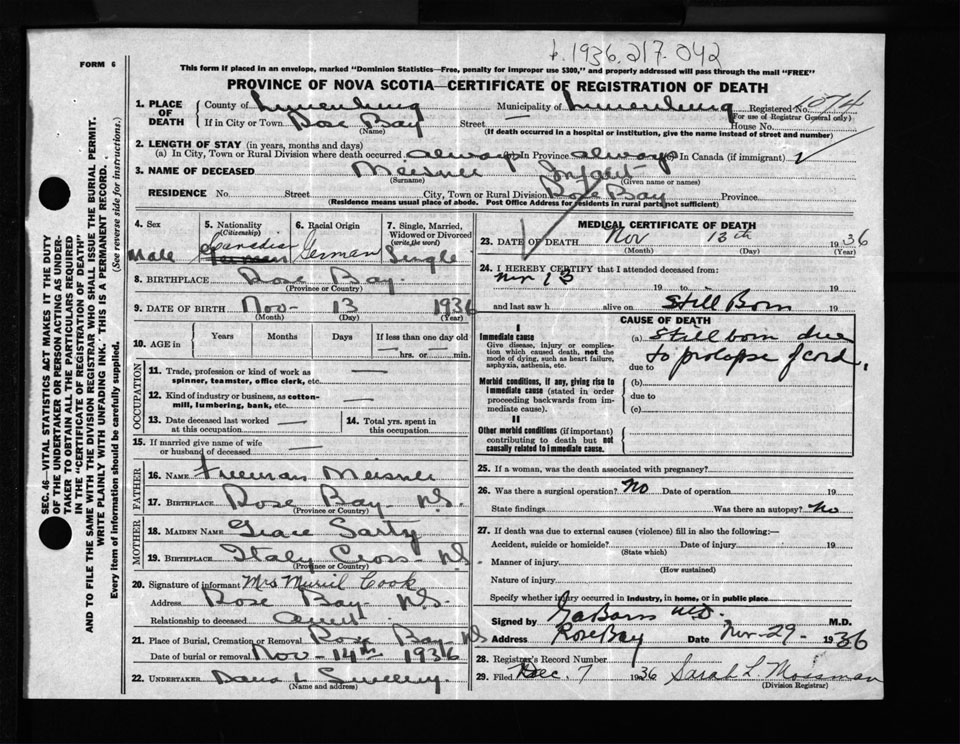 b. 1936. 217. 042
FORM 6
This form if placed in an envelope, marked "Dominion Statistics—Free, penalty for improper use $300," and properly addressed will pass through the mail "FREE"
PROVINCE OF NOVA SCOTIA—CERTIFICATE OF REGISTRATION OF DEATH
1. PLACE OF DEATH
County of Lunenburg Municipality of Lunenburg Registered No. 074
(For use of Registrar General only)
If in City or Town Rose Bay Street — House No.
(Name) (If death occurred in a hospital or institution, give name instead of street and number)
2. LENGTH OF STAY (in years, months and days)
(a) In City, Town or Rural Division where death occurred always (b) in Province always (c) In Canada (if immigrant)
3. NAME OF DECEASED Meisner Infant
(Surname) (Given name or names)
RESIDENCE No. Street City, Town or Rural Division Rose Bay Province
(Residence means usual place of abode. Post Office Address for residents in rural parts not sufficient)
4. Sex Male
5. Nationality (Citizenship) Canadian German
6. Racial Origin German
7. Single, Married, Widowed or Divorced (write the word) Single
8. BIRTHPLACE Rose Bay
(Province or Country)
9. DATE OF BIRTH Nov — 13 1936
(Month) (Day) (Year)
10. AGE in Years Months Days If less than one day old
hrs. or min.
OCCUPATION
11. Trade, profession or kind of work as spinner, teamster, office clerk, etc. —
12. Kind of industry or business, as cotton-mill, lumbering, bank, etc. —
13. Date deceased last worked at this occupation —
14. Total yrs. spent in this occupation
15. If married give name of wife or husband of deceased —
FATHER
16. NAME Freeman Meisner
17. BIRTHPLACE Rose Bay N.S.
(Province or Country)
MOTHER
18. MAIDEN NAME Grace Sarty
19. BIRTHPLACE Italy Cross N.S.
(Province or Country)
20. Signature of informant Mrs Muriel Cook
Address Rose Bay N.S.
Relationship to deceased Aunt
21. Place of Burial, Cremation or Removal Rose Bay NS
Date of burial or removal Nov — 14th 1936
22. UNDERTAKER
(Name and address)
MEDICAL CERTIFICATE OF DEATH
23. DATE OF DEATH Nov 13th 1936
(Month) (Day) (Year)
24. I HEREBY CERTIFY that I attended deceased from:
Nov 13 19 to 19
and last saw h alive on Still Born 19
CAUSE OF DEATH
I
Immediate cause
Give disease, injury or complication which caused death, not the mode of dying, such as heart failure, asphyxia, asthenia, etc.
(a) Still born due
due to to prolapse of cord.
Morbid conditions, if any, giving rise to immediate cause (stated in order proceeding backwards from immediate cause).
(b)
due to
(c)
II
Other morbid conditions (if important) contributing to death but not causally related to immediate cause.
25. If a woman, was the death associated with pregnancy?
26. Was there a surgical operation? No Date of operation 19
State findings Was there an autopsy? No
27. If death was due to external causes (violence) fill in also the following:—
Accident, suicide or homicide? Date of injury 19
(State which)
Manner of injury
(How sustained)
Nature of injury
Specify whether injury occurred in industry, in home, or in public place
Signed by M.D. M.D.
Address Rose Bay Date Nov-29- 1936
28. Registrar's Record Number
29. Filed Dec. 7 1936 Sarah L. Mossman
(Division Registrar)
SEC. 46—VITAL STATISTICS ACT MAKES IT THE DUTY
OF THE UNDERTAKER OR PERSON ACTING AS UNDER-
TAKER TO OBTAIN ALL THE PARTICULARS REQUIRED
IN THE "CERTIFICATE OF REGISTRATION OF DEATH"
AND TO FILE THE SAME WITH THE DIVISION REGISTRAR WHO SHALL ISSUE THE BURIAL PERMIT.
WRITE PLAINLY WITH UNFADING INK. THIS IS A PERMANENT RECORD.
Every item of information should be carefully supplied. (See reverse side for instructions.)